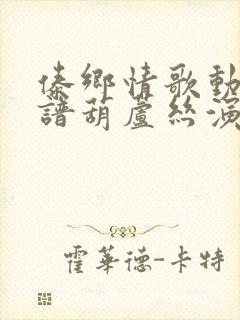 傣鄉情歌動
譜葫蘆絲演
霍華德-卡特